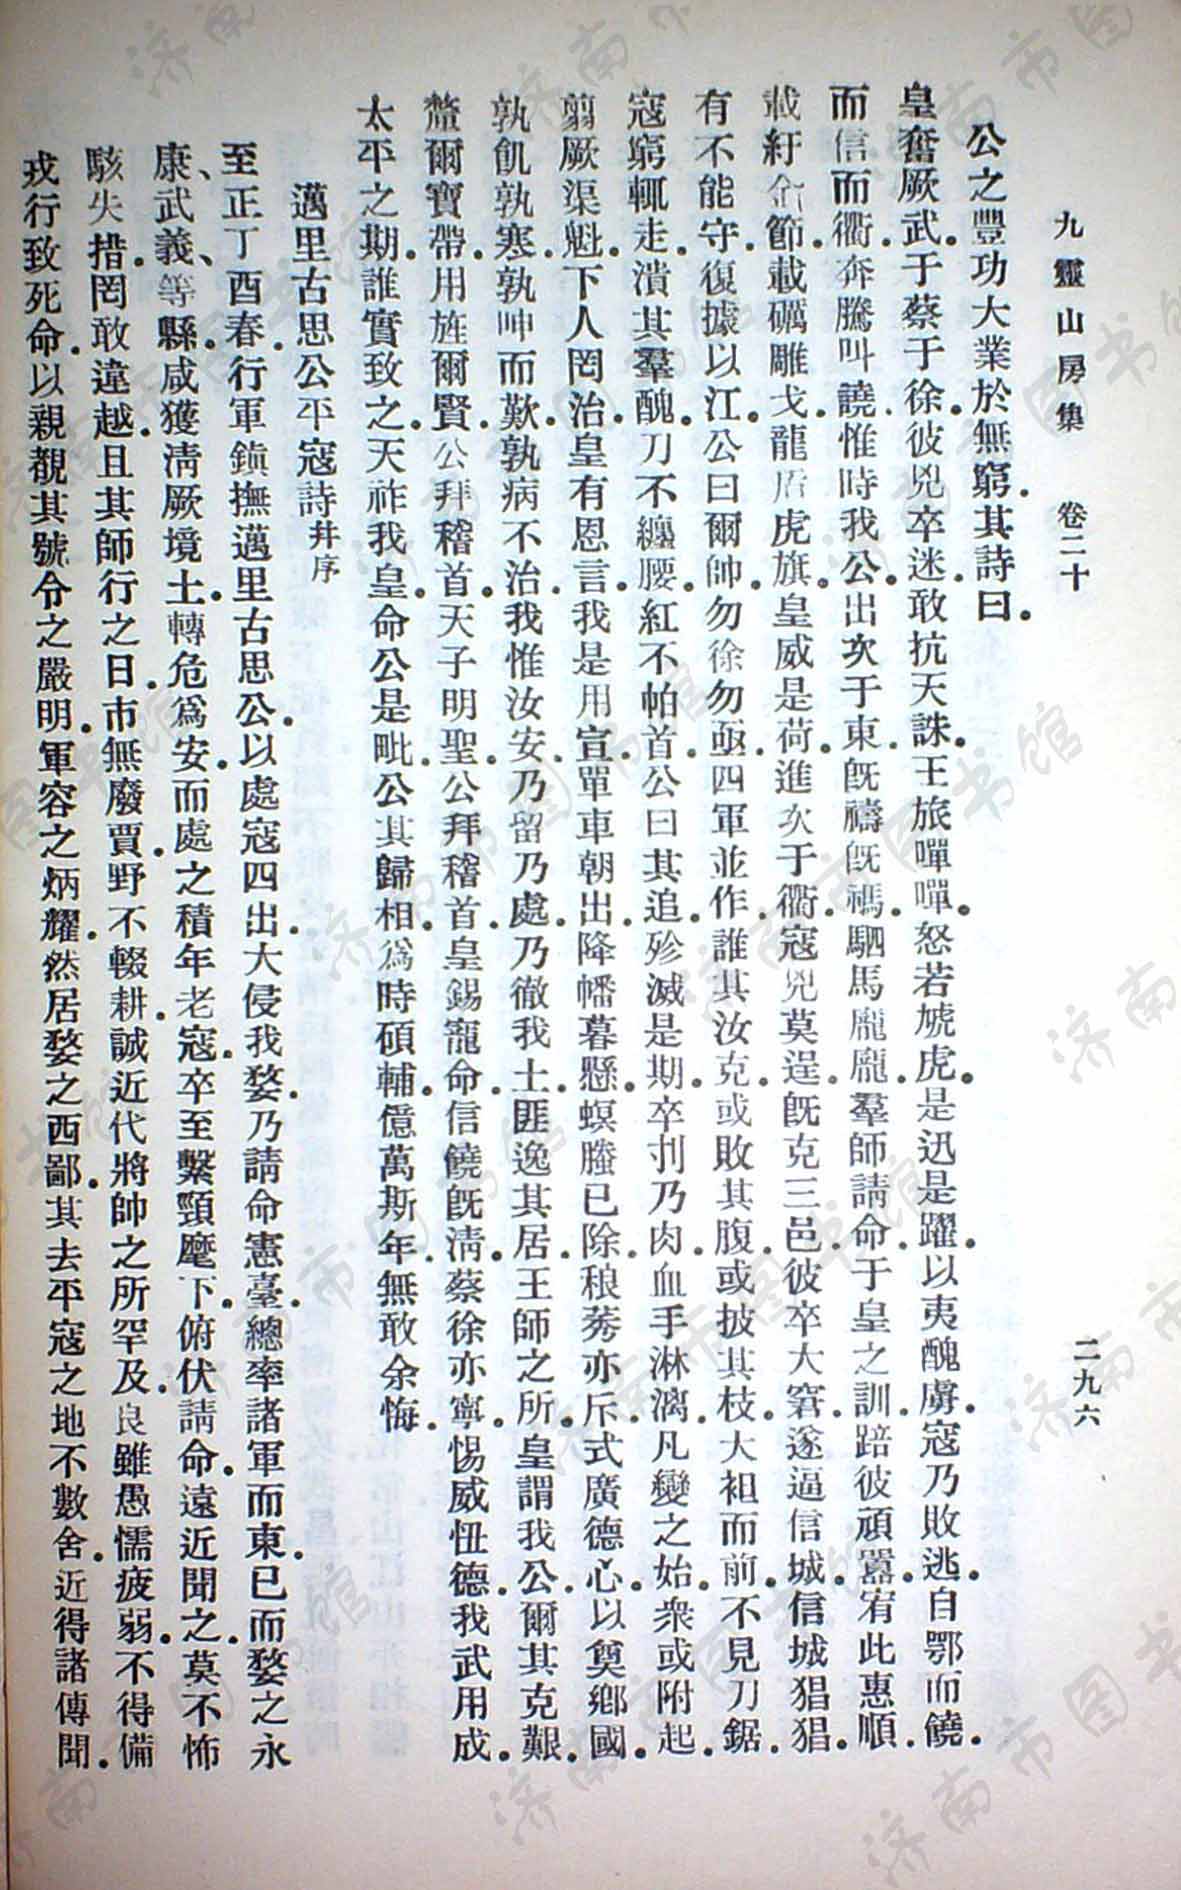 九靈山房集　卷二十　二九六
公之豐功大業於無窮.其詩曰.
皇奮厥武.于蔡于徐.彼兇卒迷.敢抗天誅.王旅嘽嘽.怒若虓虎.是迅是躍.以夷醜虜.寇乃敗逃.自鄂而饒.
而信而衢.奔騰叫譊.惟時我公.出次于東.旣禱旣禡.駟馬龐龐.羣師請命.于皇之訓.踣彼頑嚚.宥此惠順.
載紆金節.載礪雕戈.龍盾虎旗.皇威是荷.進次于衢.寇兇莫逞.旣克三邑.彼卒大窘.遂逼信城.信城猖猖.
有不能守.復據以江.公曰爾帥.勿徐勿亟.四軍並作.誰其汝克.或敗其腹.或披其枝.大袒而前.不見刀鋸.
寇窮輒走.潰其羣醜.刀不纏腰.紅不帕首.公曰其追.殄滅是期.卒刲乃肉.血手淋漓.凡變之始.衆或附起.
翦厥渠魁.下人罔治.皇有恩言.我是用宣.單車朝出.降幡暮懸.螟螣已除.稂莠亦斥.式廣德心.以奠鄉國.
孰飢孰寒.孰呻而歎.孰病不治.我惟汝安.乃留乃處.乃徹我土.匪逸其居.王師之所.皇謂我公.爾其克艱.
釐爾寶帶.用旌爾賢.公拜稽首.天子明聖.公拜稽首.皇錫寵命.信饒旣淸.蔡徐亦寧.惕威忸德.我武用成.
太平之期.誰實致之.天祚我皇.命公是毗.公其歸相.爲時碩輔.億萬斯年.無敢余悔.
邁里古思公平寇詩幷序
至正丁酉春.行軍鎭撫邁里古思公.以處寇四出.大侵我婺.乃請命憲臺.總率諸軍而東.已而婺之永
康、武義、等縣.咸獲淸厥境土.轉危爲安.而處之積年老寇.卒至繫頸麾下.俯伏請命.遠近聞之.莫不怖
駭失措.罔敢違越.且其師行之日.市無廢賈.野不輟耕.誠近代將帥之所罕及.良雖愚懦疲弱.不得備
戎行致死命.以親觀其號令之嚴明.軍容之炳耀.然居婺之西鄙.其去平寇之地不數舍.近得諸傳聞.